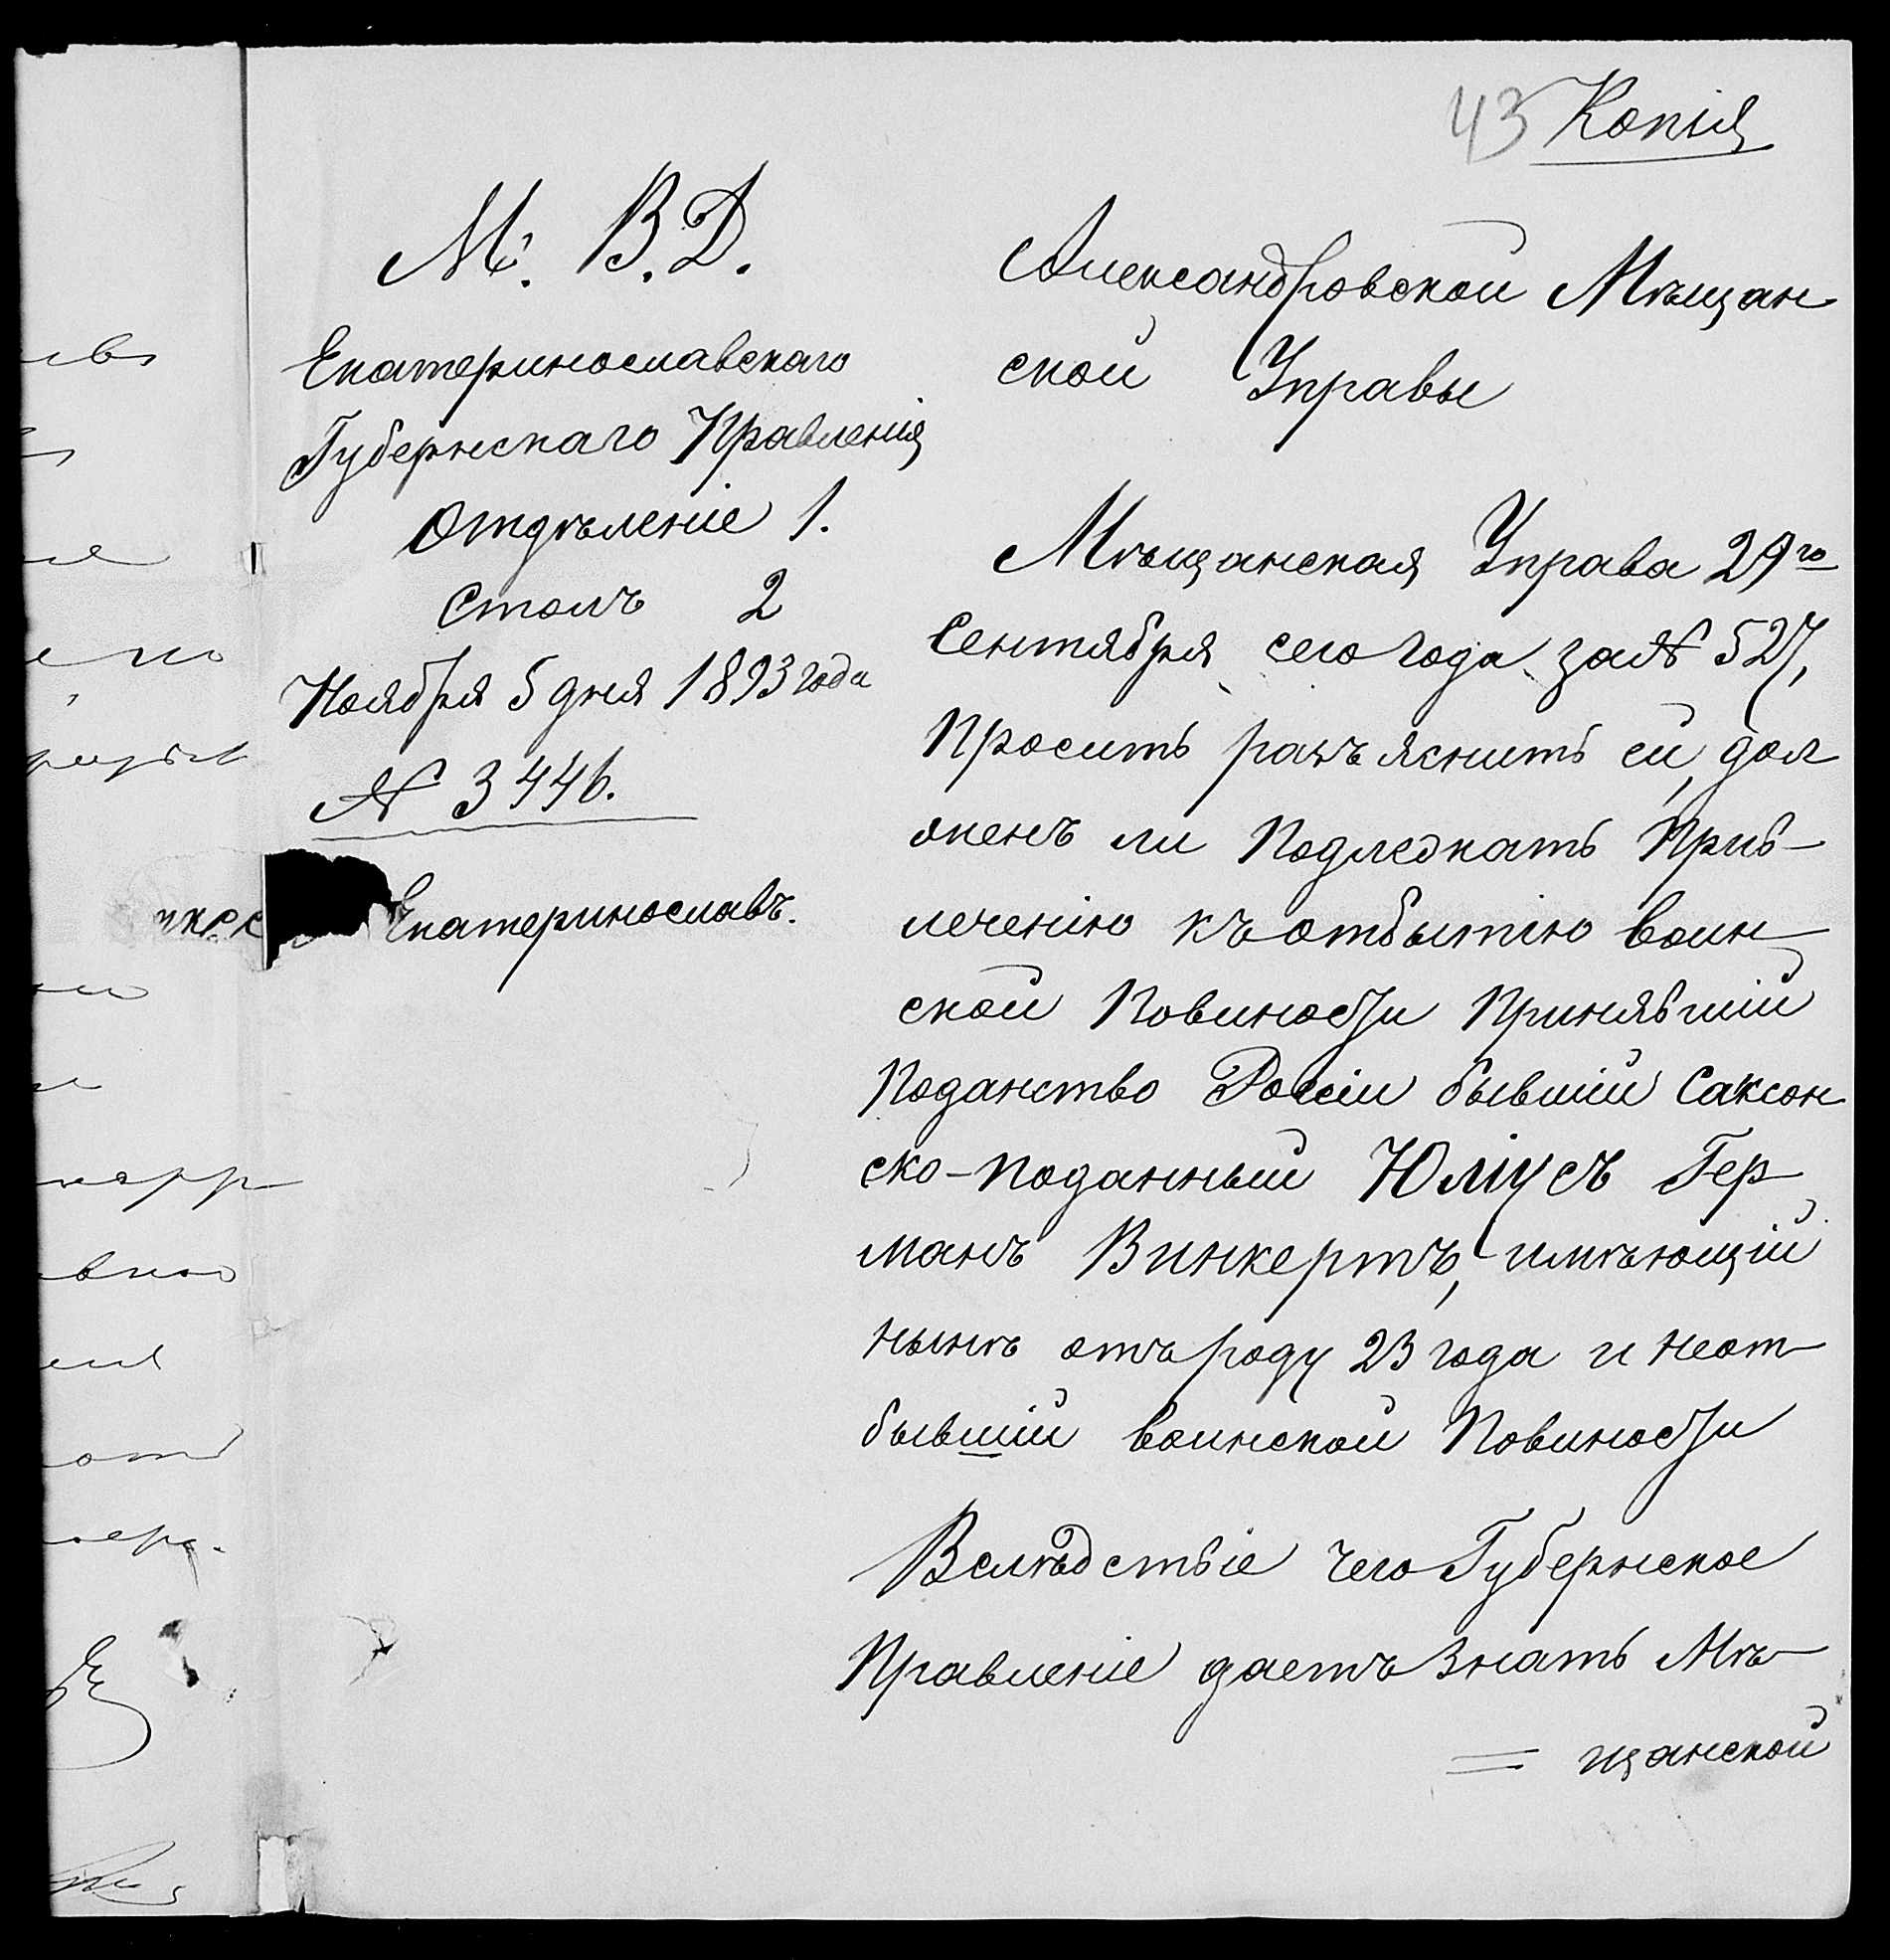 43 Копія
М. В. Д.
Екатеринославскаго
Губернскаго Правленія
Отдѣленіе 1.
Столъ 2
Ноября 5 дня 1893 года
№ 3446.
Екатеринославъ.
Александровской Мѣщан
ской Управы
Мѣщанская Управа 29го
Сентября сего года за № 527,
Просить разъяснить ей, дол
женъ ли Подлежать Прив-
леченію къ отбытію воин
ской Повиности Принявшій
Поданство Россіи бывшій Саксон
ско-поданный Юліусъ Гер
манъ Винкертъ, имѣющій
нынѣ отъ роду 23 года и неот
бывшій воинской Повиности
Вслѣдствіе чего Губернское
Правленіе даетъ знать Мѣ
= щанской